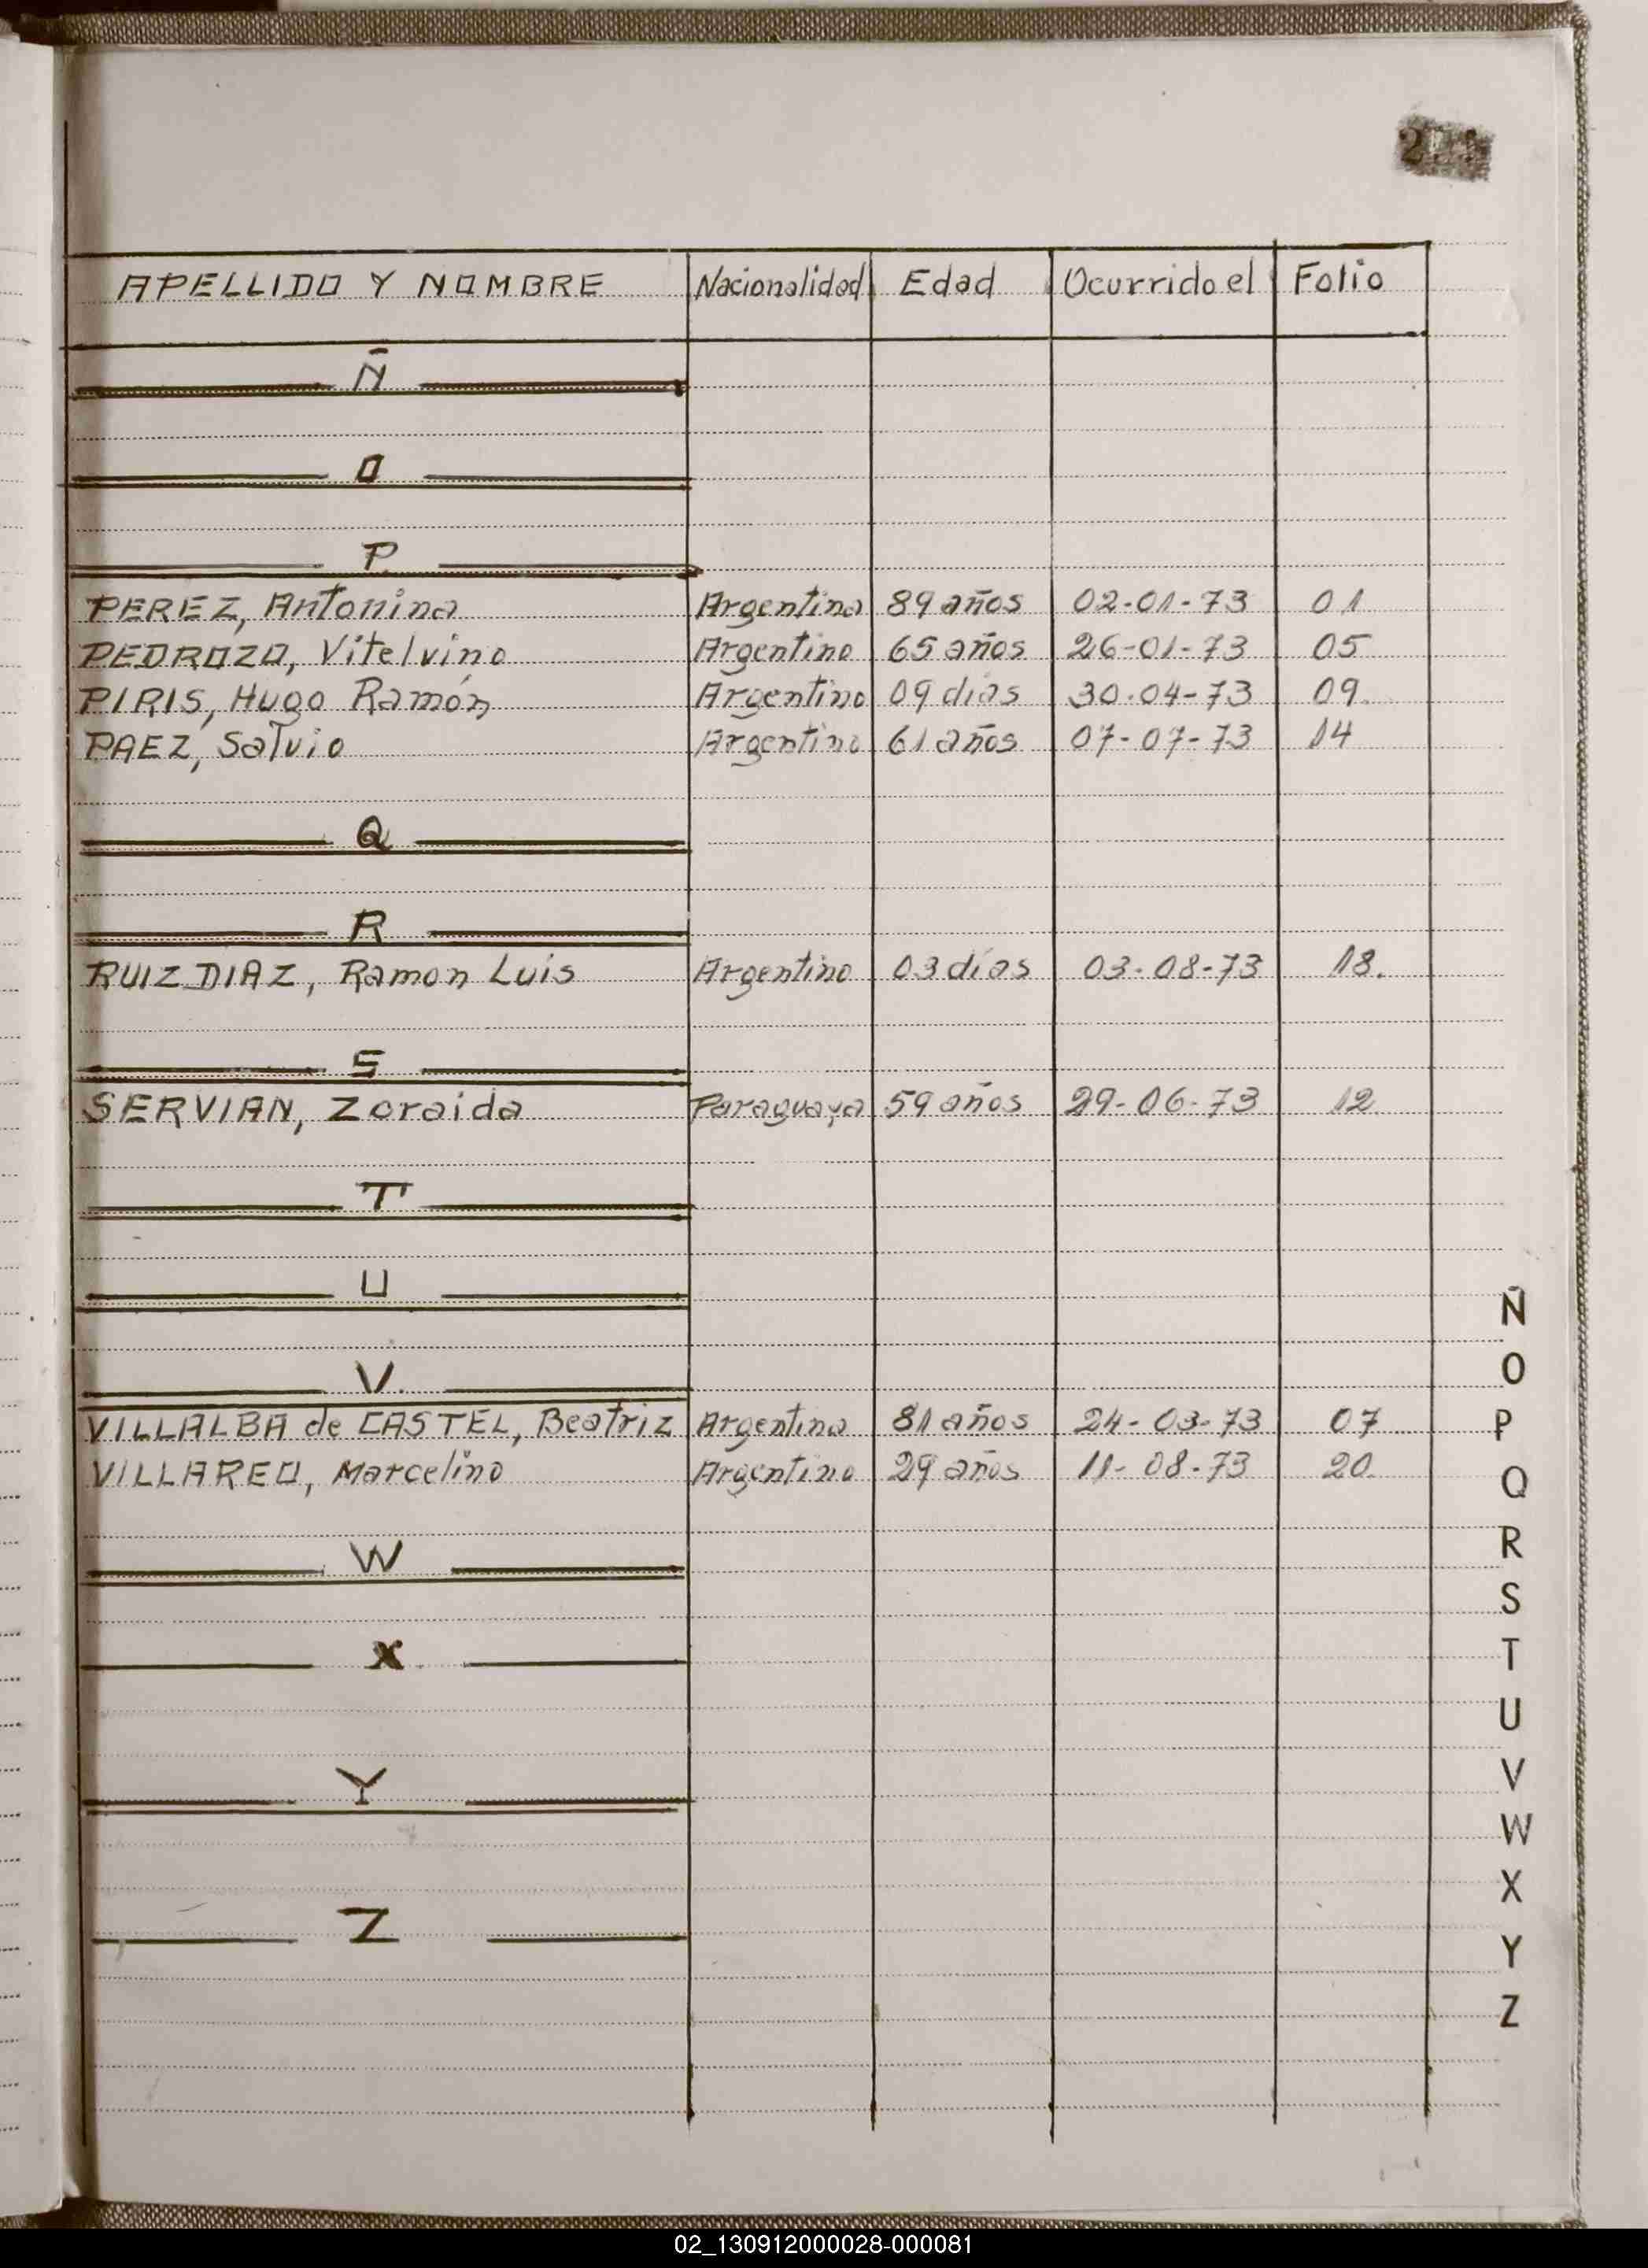 APELLIDO Y NOMBRE Nacionalidad Edad Ocurrido el Folio
Ñ
O
P
PEREZ, Antonina Argentina 89 años 02-01-73 01
PEDROZO, Vitelvino Argentino 65 años 26-01-73 05
PIRIS, Hugo Ramón Argentino 09 días 30-04-73 09
PAEZ, Salvio Argentino 61 años 07-07-73 14
Q
R
RUIZ DIAZ, Ramon Luis Argentino 03 días 03-08-73 18.
S
SERVIAN, Zoraida Paraguaya 59 años 29-06-73 12
T
U
V.
VILLALBA de CASTEL, Beatriz Argentina 81 años 24-03-73 07
VILLAREO, Marcelino Argentino 29 años 11-08-73 20
W
X
Y
Z
Ñ
O
P
Q
R
S
T
U
V
W
X
Y
Z
02_130912000028-000081